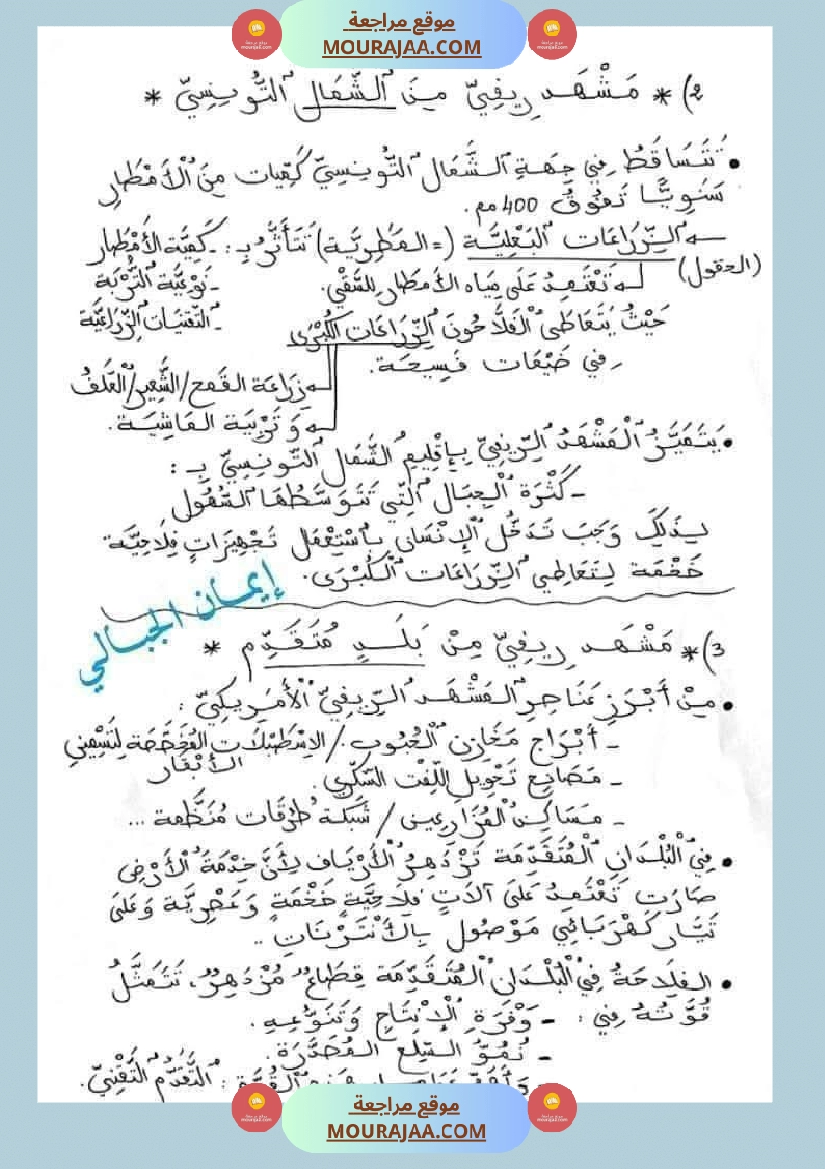 موقع مراجعة
MOURAJAA.COM
2) * مَشْهَد رِيفِيّ مِنَ الشَّمَالِ التُّونِسِيّ *
• تَتَسَاقَطُ فِي جِهَةِ الشَّمَال التُّونِسِيّ كَمِّيات مِنَ الْأَمْطَارِ
سَنَوِيًّا تَفُوقُ 400 مم.
الزِّرَاعَات البَعْلِيَّة (= المَطَرِيَّة) تَتَأَثَّرُ بِـ : - كَمِيَّة الأَمْطَار
(الحقول)
تَعْتَمِدُ عَلَى مِيَاه الأَمطَار لِلسَّقْيِ. - نَوْعِيَّة التُّرْبَة
- التِّقْنِيَات الزِّرَاعِيَّة
حَيْثُ يَتَعَاطَى الْفَلَّاحُونَ الزِّرَاعَات الكُبْرَى
فِي ضَيْعَات فَسِيحَة.
زِرَاعَة القَمح/الشَّعِير/الْعَلَفُ
وَ تَرْبِيَة المَاشِيَة.
• يَتَمَيَّزُ الْمَشْهَدُ الرِّيفِيّ بِإِقْلِيمِ الشَّمَال التُّونِسِيّ بِـ :
- كَثْرَة الْجِبَال الَّتِي تَتَوَسَّطُهَا السُّهُول
لِذَلِكَ وَجَبَ تَدَخُّل الْإِنْسَانِ بِاسْتِعْمَالِ تَجْهِيزَاتٍ فِلَاحِيَّة
ضَخْمَة لِتَعَاطِي الزِّرَاعَات الْكُبْرَى.
إيمان الجبالي
3) * مَشْهَد رِيفِيّ مِنْ بَلَدٍ مُتَقَدِّم *
• مِنْ أَبْرَزِ عَنَاصِرِ المَشْهَد الرِّيفِيّ الْأَمْرِيكِيّ :
- أَبْرَاج مَخَازِن الْحُبُوب / الاسْطَبْلَات المُخَصَّصَة لِتَسْمِينِ
الأَبْقَار
- مَصَانِع تَحْوِيل اللِّفْت السُّكَّرِي.
- مَسَاكِن الْمُزَارِعِين / شَبَكَة طُرُقَات مُنَظَّمة ...
• فِي الْبُلْدَانِ الْمُتَقَدِّمَة تَزْدَهِرُ الْأَرْيَاف لِأَنَّ خِدْمَةُ الْأَرْضِ
صَارَت تَعْتَمِدُ عَلَى آلَاتٍ فِلَاحِيَّةٍ ضَخْمَةٍ وَعَصْرِيَّة وَعَلَى
تَيَّار كَهْرَبَائِي مَوْصُول بِالأَنْتَرْنَات ..
• الفِلَاحَةُ فِي الْبُلْدَانِ الْمُتَقَدِّمَة قِطَاعٌ مُزْدَهِرٌ، تَتَمَثَّلُ
قُوَّتُهُ فِي : - وَفْرَةِ الْإِنْتَاجِ وَتَنَوُّعِهِ.
- نُمُوّ السِّلَعِ المُصَدَّرَة.
التَّقَدُّم التِّقْنِيّ.
موقع مراجعة
MOURAJAA.COM